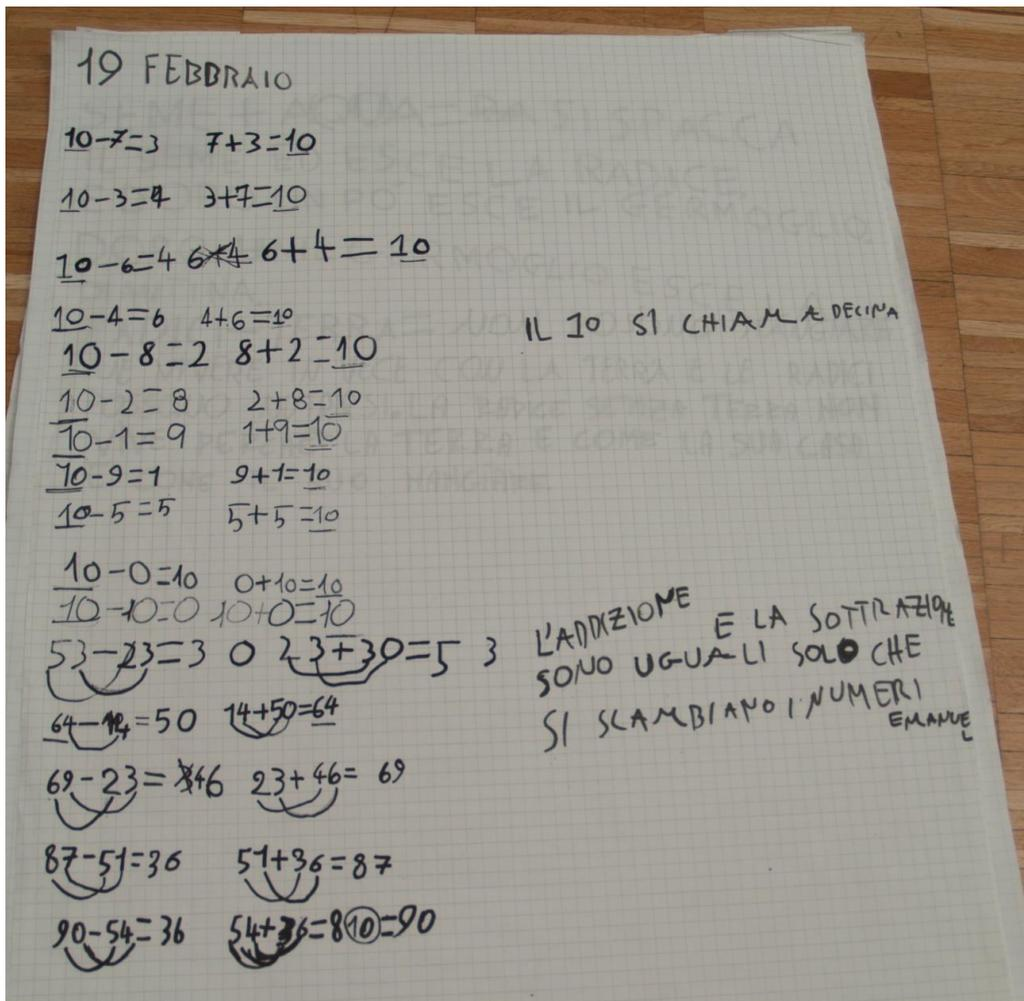 19 FEBBRAIO
10-7=3 7+3=10
10-3=4 3+7=10
10-6=4 6+4 6+4=10
10-4=6 4+6=10
IL 10 SI CHIAMA DECINA
10-8=2 8+2=10
10-2=8 2+8=10
10-1=9 1+9=10
10-9=1 9+1=10
10-5=5 5+5=10
10-0=10 0+10=10
10-10=0 10+0=10
53-23=30 23+30=53
64-14=50 14+50=64
69-23=46 23+46=69
87-51=36 51+36=87
90-54=36 54+36=810=90
L'ADDIZIONE E LA SOTTRAZIONE
SONO UGUALI SOLO CHE
SI SCAMBIANO I NUMERI
EMANUEL